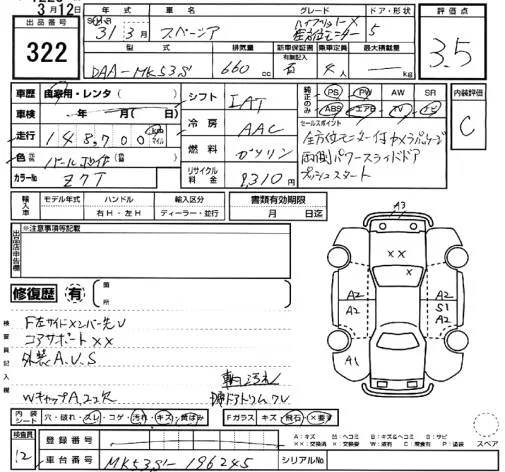 3月12日
出品番号
322
年式 車名 グレード ドア・形状 評価点
31年3月 スペーシア ハイブリッドX 5
全方位モニター
3.5
型式 排気量 新車保証書 乗車定員 最大積載量
有無記入
DAA-MK53S 660cc 否 4人 kg
車歴 自家用・レンタ( )
シフト IAT
純正のみ PS PW AW SR
ABS エアB TV ナビ
内装評価
C
車検 年 月( 日)
冷房 AAC
セールスポイント
全方位モニター付カメラパッケージ
両側パワースライドドア
プッシュスタート
走行 148,700 km マイル
燃料 ガソリン
色 パールホワイト
リサイクル料金 9,310円
カラーNo Z7T
輸入車 モデル年式 ハンドル 輸入区分
右H・左H ディーラー・並行
書類有効期限
月 日迄
出品店申告欄
※注意事項等記載
修復歴 有
箇所
検査員記入欄
F左サイドメンバー先V
コアサポートXX
外装A.U.S
WキャップA.ココ欠
A3
XX
X
A2
A2
S1
A2
A2
A1
内装シート 穴・破れ・スレ・コゲ・汚れ・キズ・黄ばみ
Fガラス キズ・飛石・X要す
検査員
12
登録番号
車台番号 MK53S-196245
シリアルNo
A:キズ U:ヘコミ B:キズ&ヘコミ S:サビ
XX:交換済 X:交換要 W:波有 C:腐食有 P:塗装
スペア